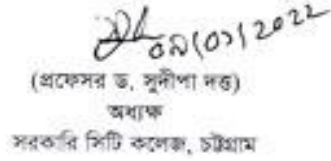 ০৯/০১/2022
(প্রফেসর ড. সুদীপা দত্ত)
অধ্যক্ষ
সরকারি সিটি কলেজ, চট্টগ্রাম